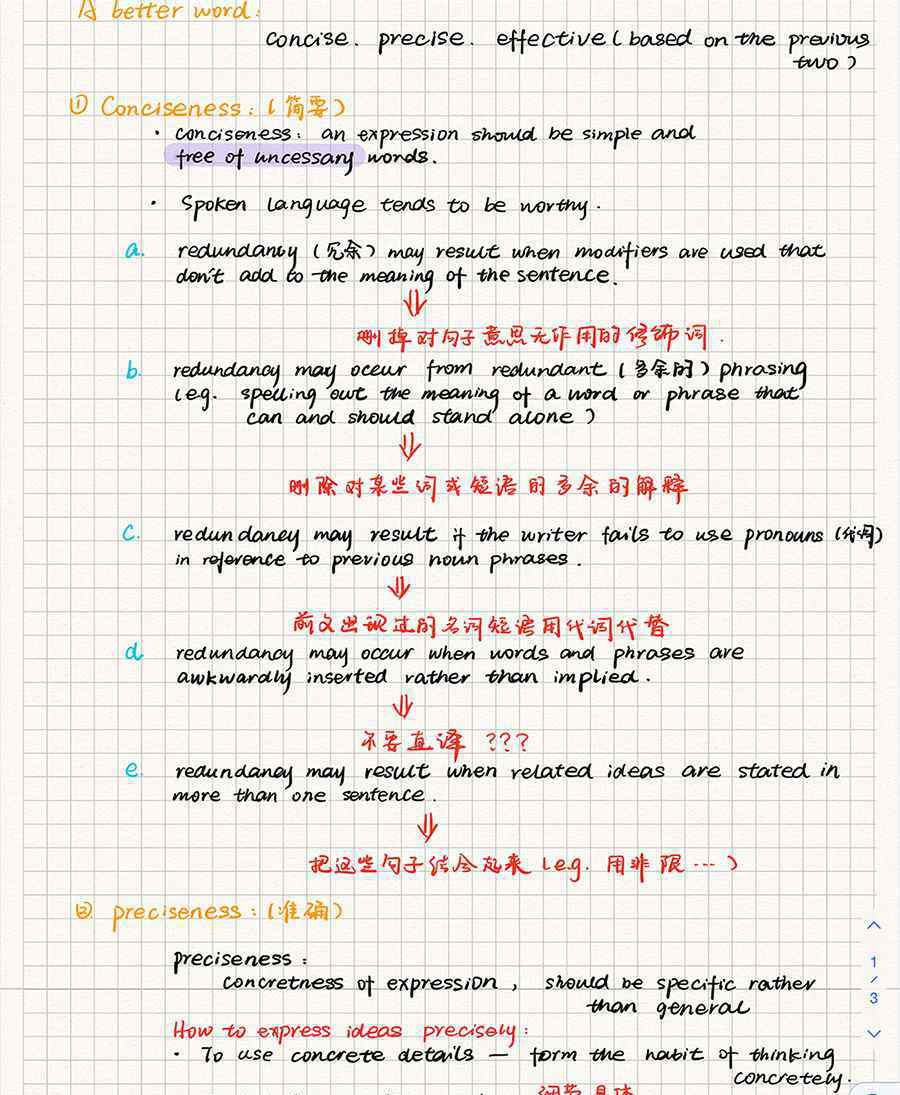 A better word:
concise. precise. effective (based on the previous
two)
① Conciseness: (简要)
· conciseness: an expression should be simple and
free of uncessary words.
· Spoken language tends to be worthy.
a. redundancy (冗余) may result when modifiers are used that
don't add to the meaning of the sentence.
删掉对句子意思无作用的修饰词.
b. redundancy may occur from redundant (多余的) phrasing
(eg. spelling out the meaning of a word or phrase that
can and should stand alone)
删除对某些词或短语的多余的解释
c. redundancy may result if the writer fails to use pronouns (代词)
in reference to previous noun phrases.
前文出现过的名词短语用代词代替
d redundancy may occur when words and phrases are
awkwardly inserted rather than implied.
不要直译 ???
e. redundancy may result when related ideas are stated in
more than one sentence.
把这些句子结合起来 (e.g. 用非限…)
② preciseness: (准确)
preciseness:
concretness of expression, should be specific rather
than general
How to express ideas precisely:
· To use concrete details — form the habit of thinking
concretely.
1
/
3